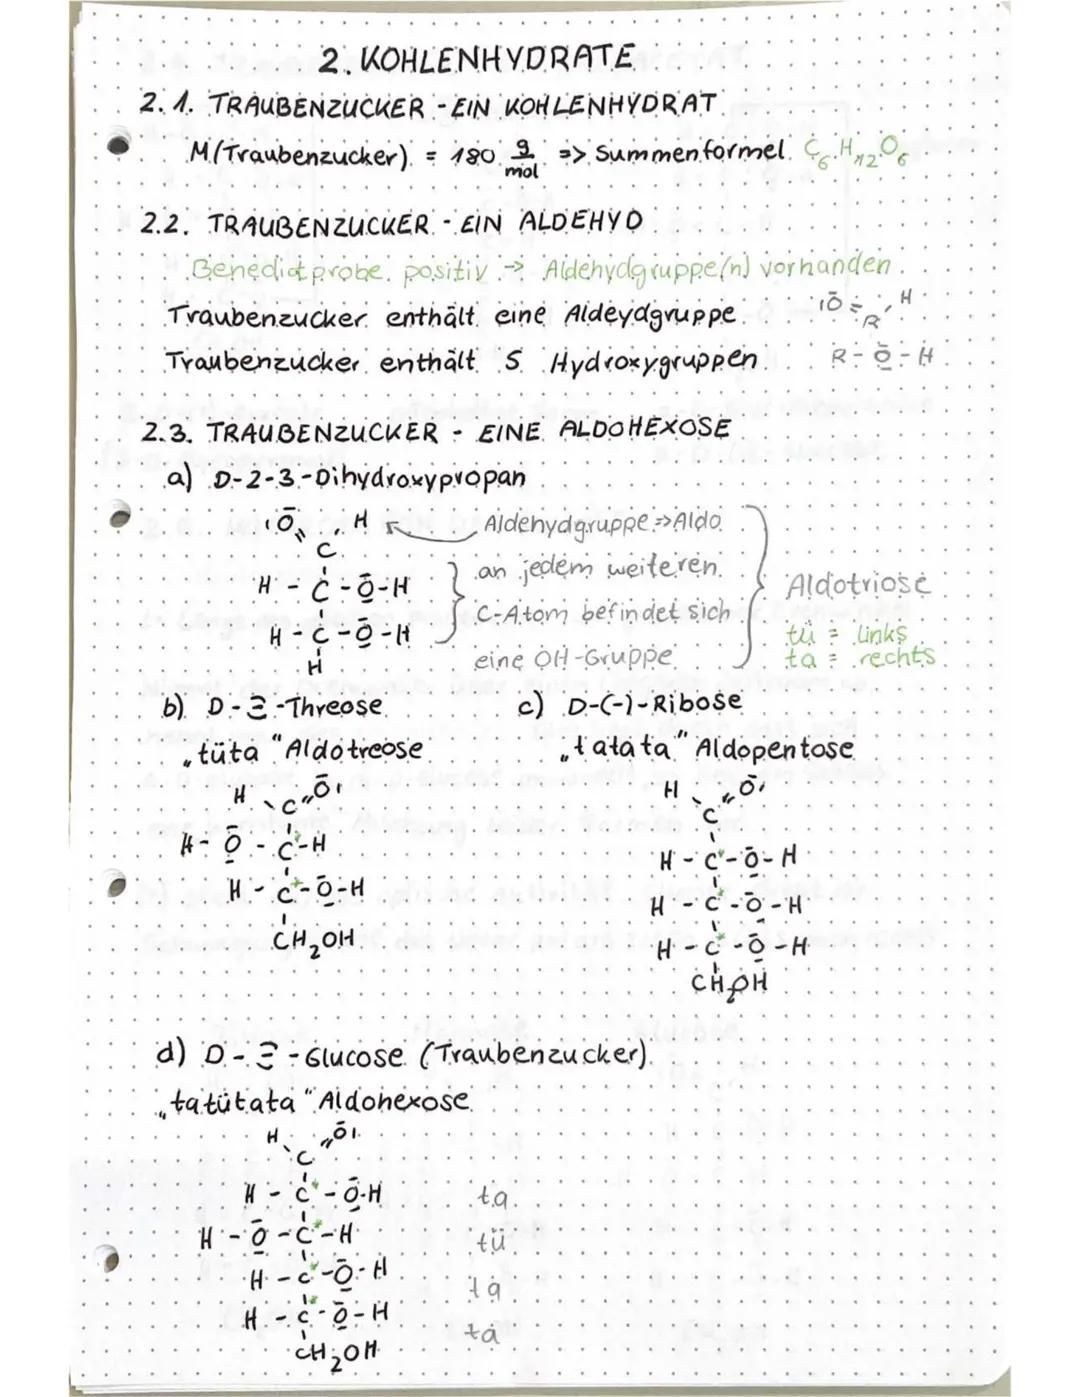 2. KOHLENHYDRATE
2.1. TRAUBENZUCKER - EIN KOHLENHYDRAT
M(Traubenzucker) = 180 g/mol => Summenformel C₆H₁₂O₆
2.2. TRAUBENZUCKER - EIN ALDEHYD
Benedictprobe positiv → Aldehydgruppe(n) vorhanden
Traubenzucker enthält eine Aldeydgruppe
IŌ = R H
Traubenzucker enthält 5 Hydroxygruppen
R - O - H
2.3. TRAUBENZUCKER - EINE ALDOHEXOSE
a) D-2-3-Dihydroxypropan
IŌ H
C
H - C - O - H
H - C - O - H
H
Aldehydgruppe => Aldo
an jedem weiteren
C-Atom befindet sich
eine OH-Gruppe
Aldotriose
tü = links
ta = rechts
b) D - Ξ -Threose
„tüta" Aldotreose
H C ŌI
H - O - C* - H
H - C* - O - H
CH₂OH
c) D-(-)-Ribose
„tatata" Aldopentose
H C ŌI
H - C* - O - H
H - C* - O - H
H - C* - O - H
CH₂OH
d) D - Ξ - Glucose (Traubenzucker)
„tatütata" Aldohexose
H C ŌI
H - C* - O - H ta
H - O - C* - H tü
H - C* - O - H ta
H - C* - O - H ta
CH₂OH